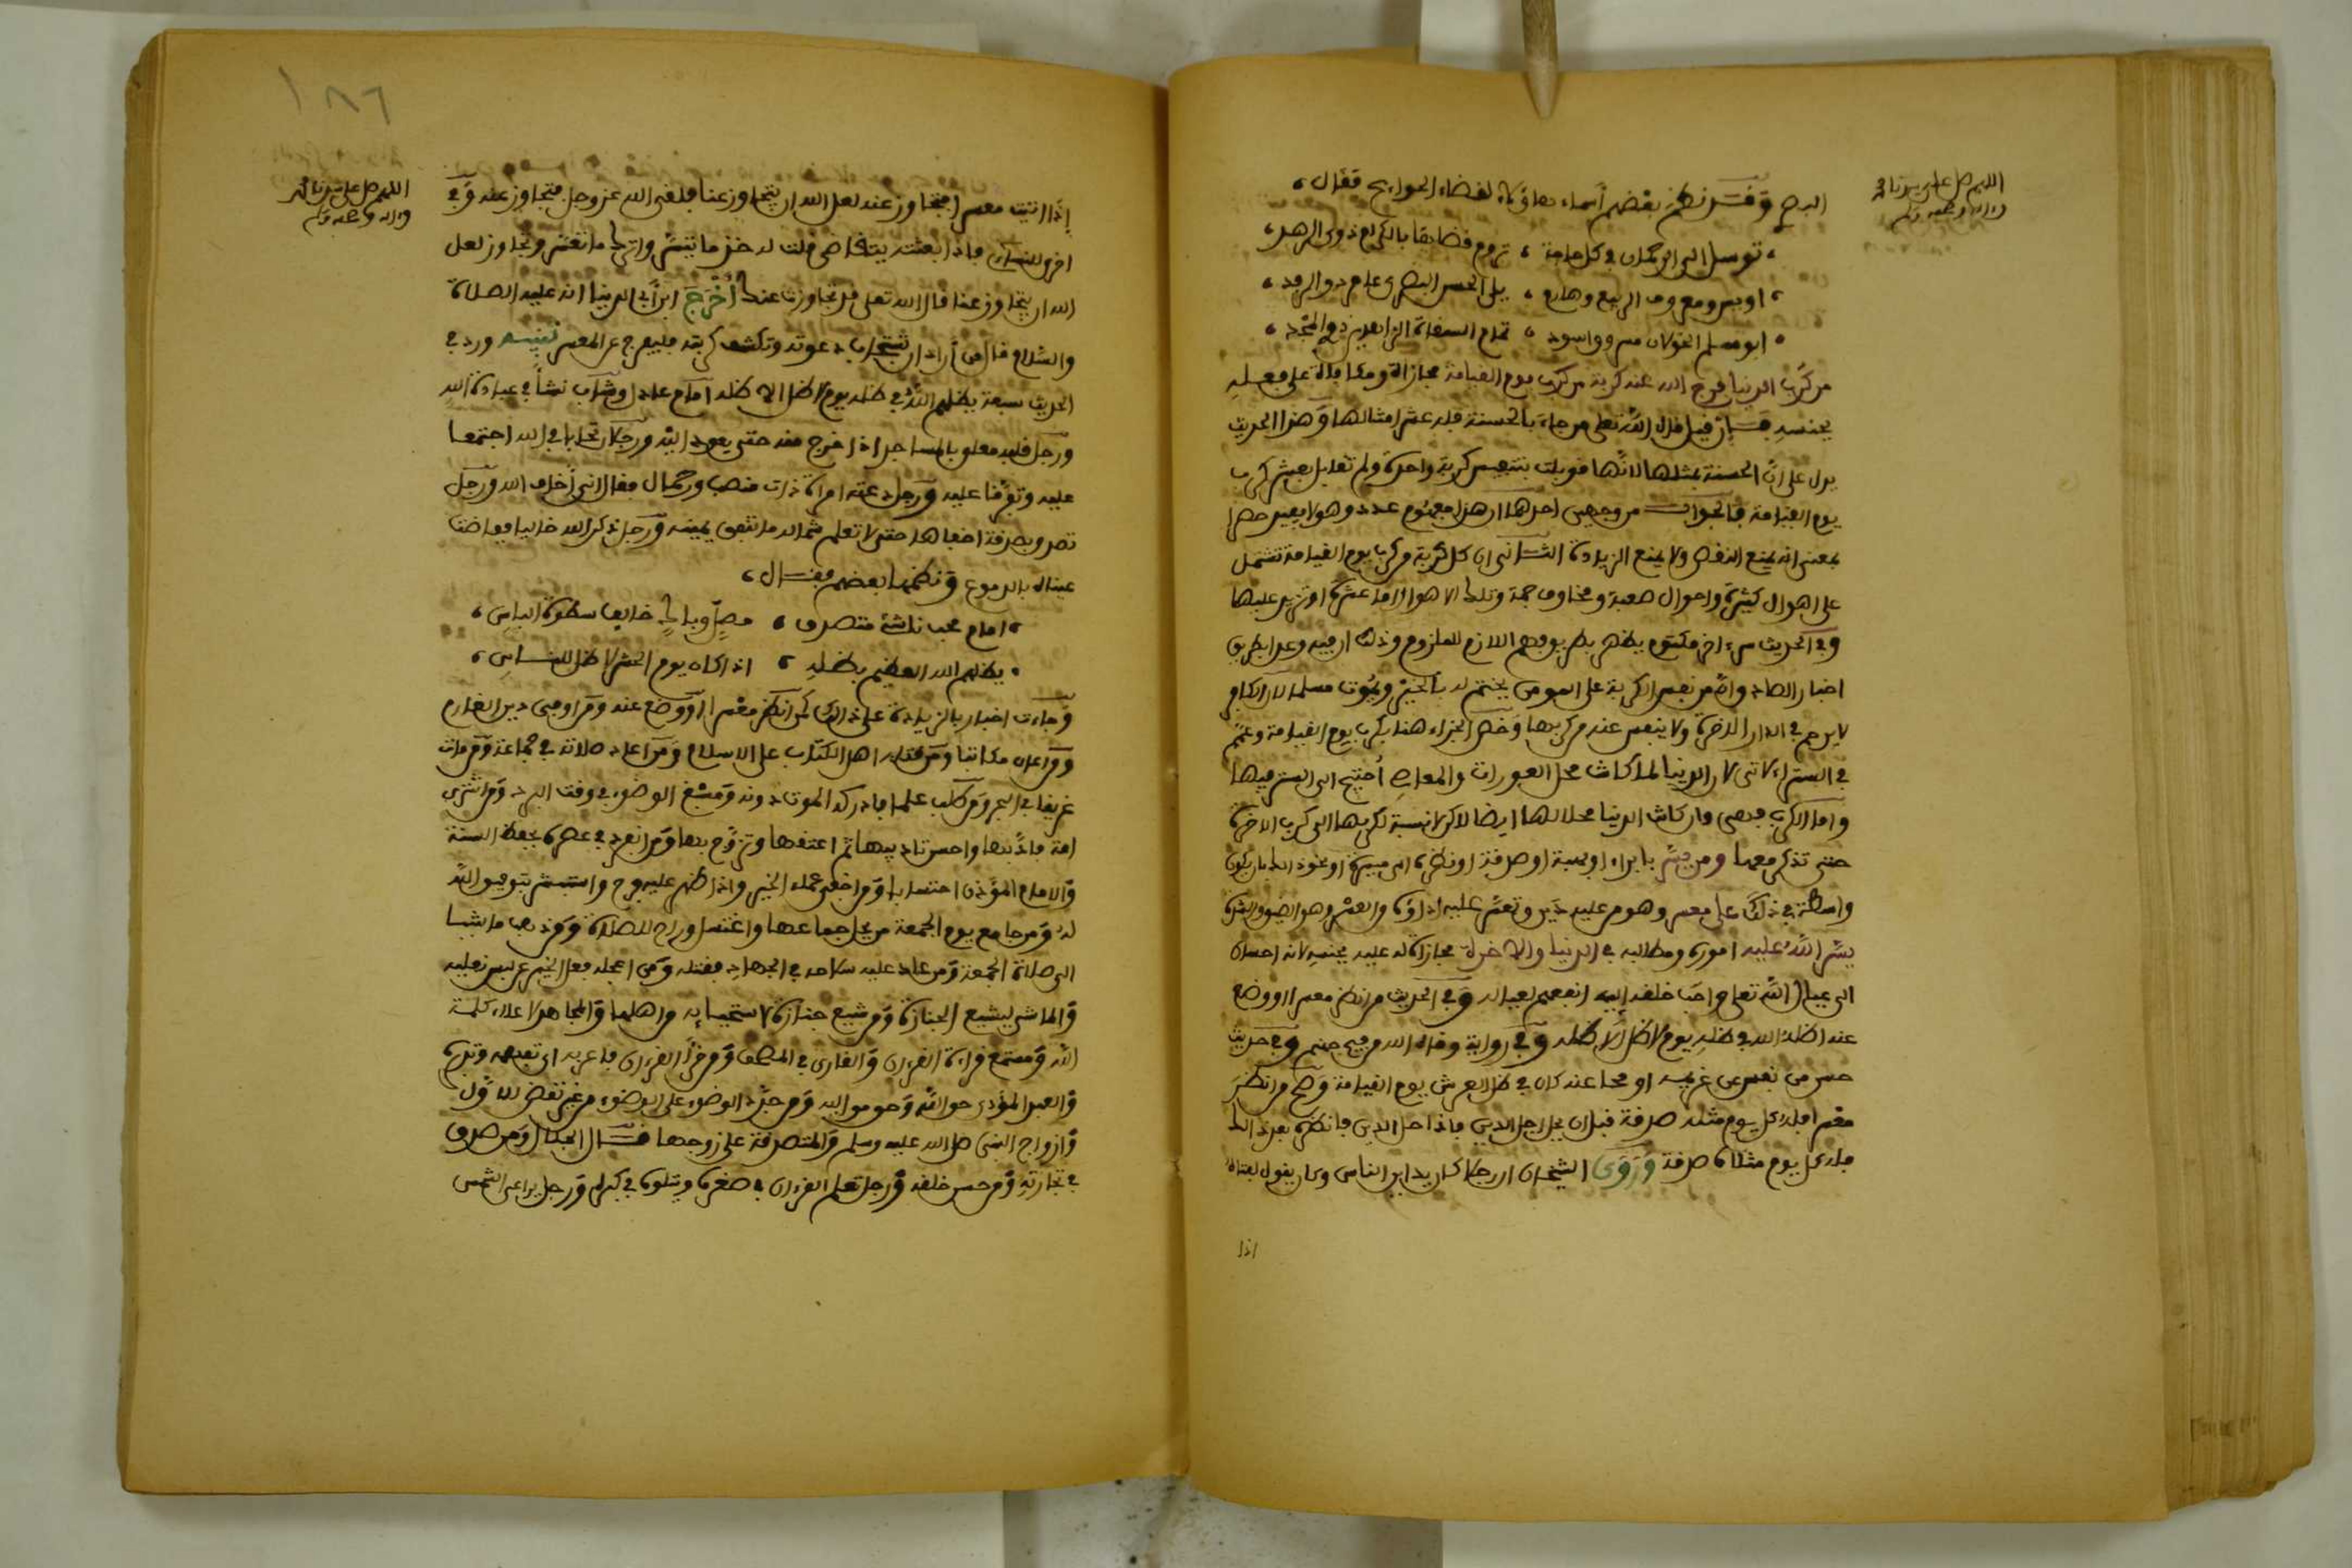 اللهم صل على سيدنا محمد
وءاله وصحبه وسلم
البرص وقد نظم بعضهم أسماء هاؤلاء لقضاء الحوايج فقال
توسل الى الرحمان في كل حاجة تروم قضاها بالكرام ذوى الزهد
اويس ومعروف الربيع وهارم يلى الحسن البصرى عامر ذو الرفد
ابو مسلم الخولان مسروق واسود تمام السفاة الزاهدين ذو المجد
من كرب الدنيا فرج الله عنه كربة من كرب يوم القيامة مجازاة ومكافاة على فعله
بجنسه فإن قيل قال الله تعلى من جاء بالحسنة فله عشر امثالها وهذا الحديث
يدل على ان الحسنة بمثلها لانها قوبلت بتنفيس كربة واحدة ولم تقابل بعشر كرب
يوم القيامة فالجواب من وجهين احدهما ان هذا مفهوم عدد وهو لا يفيد حصرا
بمعنى انه يمنع النقص ولا يمنع الزيادة الثانى ان كل كربة من كرب يوم القيامة تشتمل
على اهوال كثيرة واحوال صعبة ومخاوف جمة وتلك الاهوال اما عشرة او تزيد عليها
وفي الحديث سر ءاخر مكتوم يظهر بطريق فهم اللازم للملزوم وذلك ان فيه وعدا بطريق
اخبار الصادق وان من نفس الكربة على المومن يختم له بالخير ويموت مسلما لان الكافر
لا يرحم في الدار الاخرة ولا ينفس عنه من كربها وخص الجزاء هنا بكرب يوم القيامة وعمم
في الستر لاتى لان الدنيا لما كانت محل العورات والمعاصي احتيج الى الستر فيها
واما الكرب فهي وان كانت الدنيا محلا لها ايضا لاكن لا نسبة لكربها الى كرب الاخرة
حتى تذكر معها ومن يسر بابراء او هبة او صدقة او نظرة الى ميسرة او نحو ذلك بان يكون
واسطة في ذلك على معسر وهو من عليه دين وتعسر عليه اداؤه والعسر وهو الضيق والشدة
يسر الله عليه اموره ومطالبه في الدنيا والاخرة مجازاة له عليه بجنسه لانه احسان
الى عيال الله تعلى واحب خلقه اليه انفعهم لعياله وفي الحديث من انظر معسرا او وضع
عنه اظله الله في ظله يوم لا ظل الا ظله وفي رواية وقاه الله من فيح جهنم وفي حديث
حسن من نفس عن غريمه او محا عنه كان في ظل العرش يوم القيامة وصح من انظر
معسرا فله كل يوم مثله صدقة قبل ان يحل اجل الدين فاذا حل الدين فانظره بعد ذلك
فله كل يوم مثلاه صدقة وروى الشيخان ان رجلا كان يداين الناس وكان يقول لفتاه
اذا
١٨٦
اللهم صل على سيدنا محمد
وءاله وصحبه وسلم
إذا اتيت معسرا فتجاوز عنه لعل الله ان يتجاوز عنا فلقى الله عز وجل فتجاوز عنه وفي
اخرى للنساءى فاذا بعثته يتقاضى قلت له خذ ما تيسر واترك ما تعسر وتجاوز لعل
الله ان يتجاوز عنا قال الله تعلى قد تجاوزت عنك أخرج ابن أبي الدنيا انه عليه الصلاة
والسلام قال من أراد ان تستجاب دعوته وتكشف كربته فليفرج عن المعسر تنبيه ورد في
الحديث سبعة يظلهم الله في ظله يوم لا ظل الا ظله امام عادل وشاب نشأ في عبادة الله
ورجل قلبه معلق بالمساجد اذا خرج منه حتى يعود اليه ورجلان تحابا في الله اجتمعا
عليه وتفرقا عليه ورجل دعته امراة ذات منصب وجمال فقال انى أخاف الله ورجل
تصدق بصدقة اخفاها حتى لا تعلم شماله ما تنفق يمينه ورجل ذكر الله خاليا ففاضت
عيناه بالدموع ونظمها بعضهم فقال
امام محب ناشئ متصدق مصل وباك خايف سطوة الباس
يظلهم الله العظيم بظله اذا كان يوم الحشر لا ظل للناس
وجاءت اخبار بالزيادة على ذالك كمن انظر معسرا أو وضع عنه ومن اوفى دين الغارم
ومن اعان مكاتبا ومن قتله اهل الكتاب على الاسلام ومن اعاد صلاته في جماعة ومن مات
غريقا في البحر ومن طلب علما فادركه الموت دونه ومسبغ الوضوء في وقت البرد ومن اشترى
امة فادبها واحسن تاديبها ثم اعتقها وتزوج بها ومن انفرد في عصره بحفظ السنة
والامام المؤذن احتسابا ومن اخفى عمله الخير واذا ظهر عليه فرح واستبشر بتوفيق الله
له ومن جامع يوم الجمعة من يحل جماعها واغتسل وراح للصلاة ومن ذهب ماشيا
الى صلاة الجمعة ومن عاد عليه سلاحه في الجهاد فقتله ومن اعجله فعل الخير عن لبس نعليه
والماشي ليشيع الجنازة ومن شيع جنازة لا استحياء به من اهلها والمجاهد لاعلاء كلمة
الله ومستمع قراءة القرءان والقارئ في المصحف ومن قرأ القرءان فاعربه اى تفهمه وتدبره
والعبد المؤدى حق الله وحق مواليه ومن جدد الوضوء على الوضوء من غير نقض للاول
وازواج النبى صلى الله عليه وسلم والمتصدقة على زوجها قال الجلال ومن صدق
في تجارته ومن حسن خلقه ورجل تعلم القرءان في صغره ويتلوه في كبره ورجل يراعى الشمس